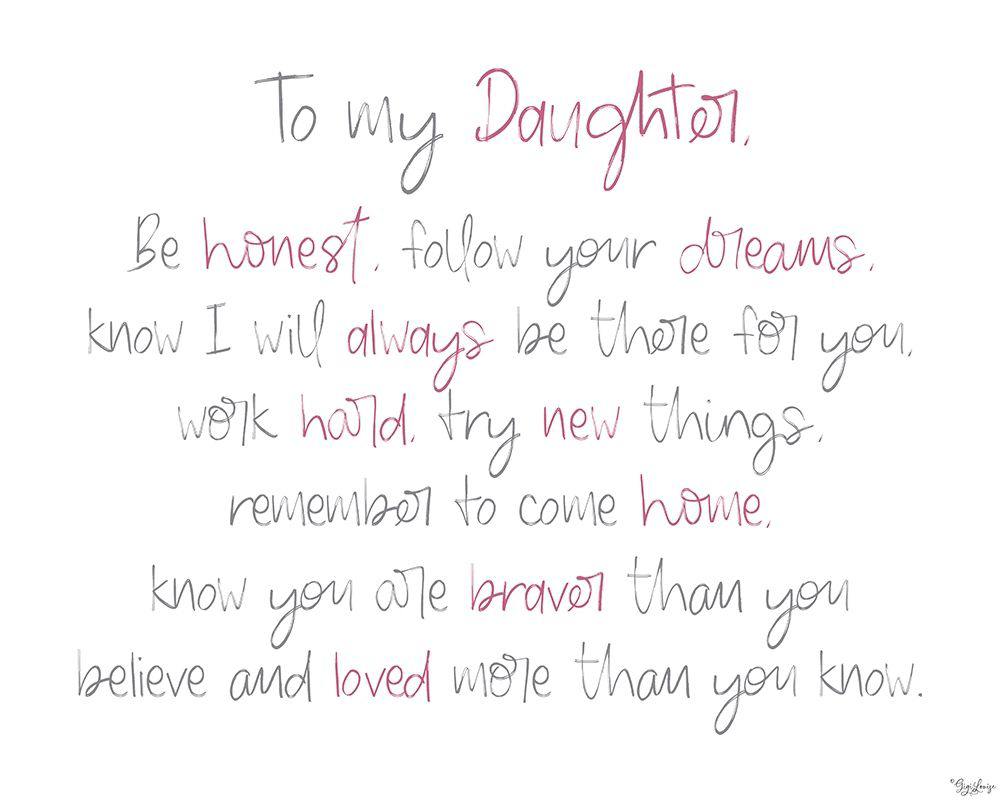 To my Daughter,
Be honest, follow your dreams,
know I will always be there for you,
work hard, try new things,
remember to come home,
know you are braver than you
believe and loved more than you know.
©Gigi Louise